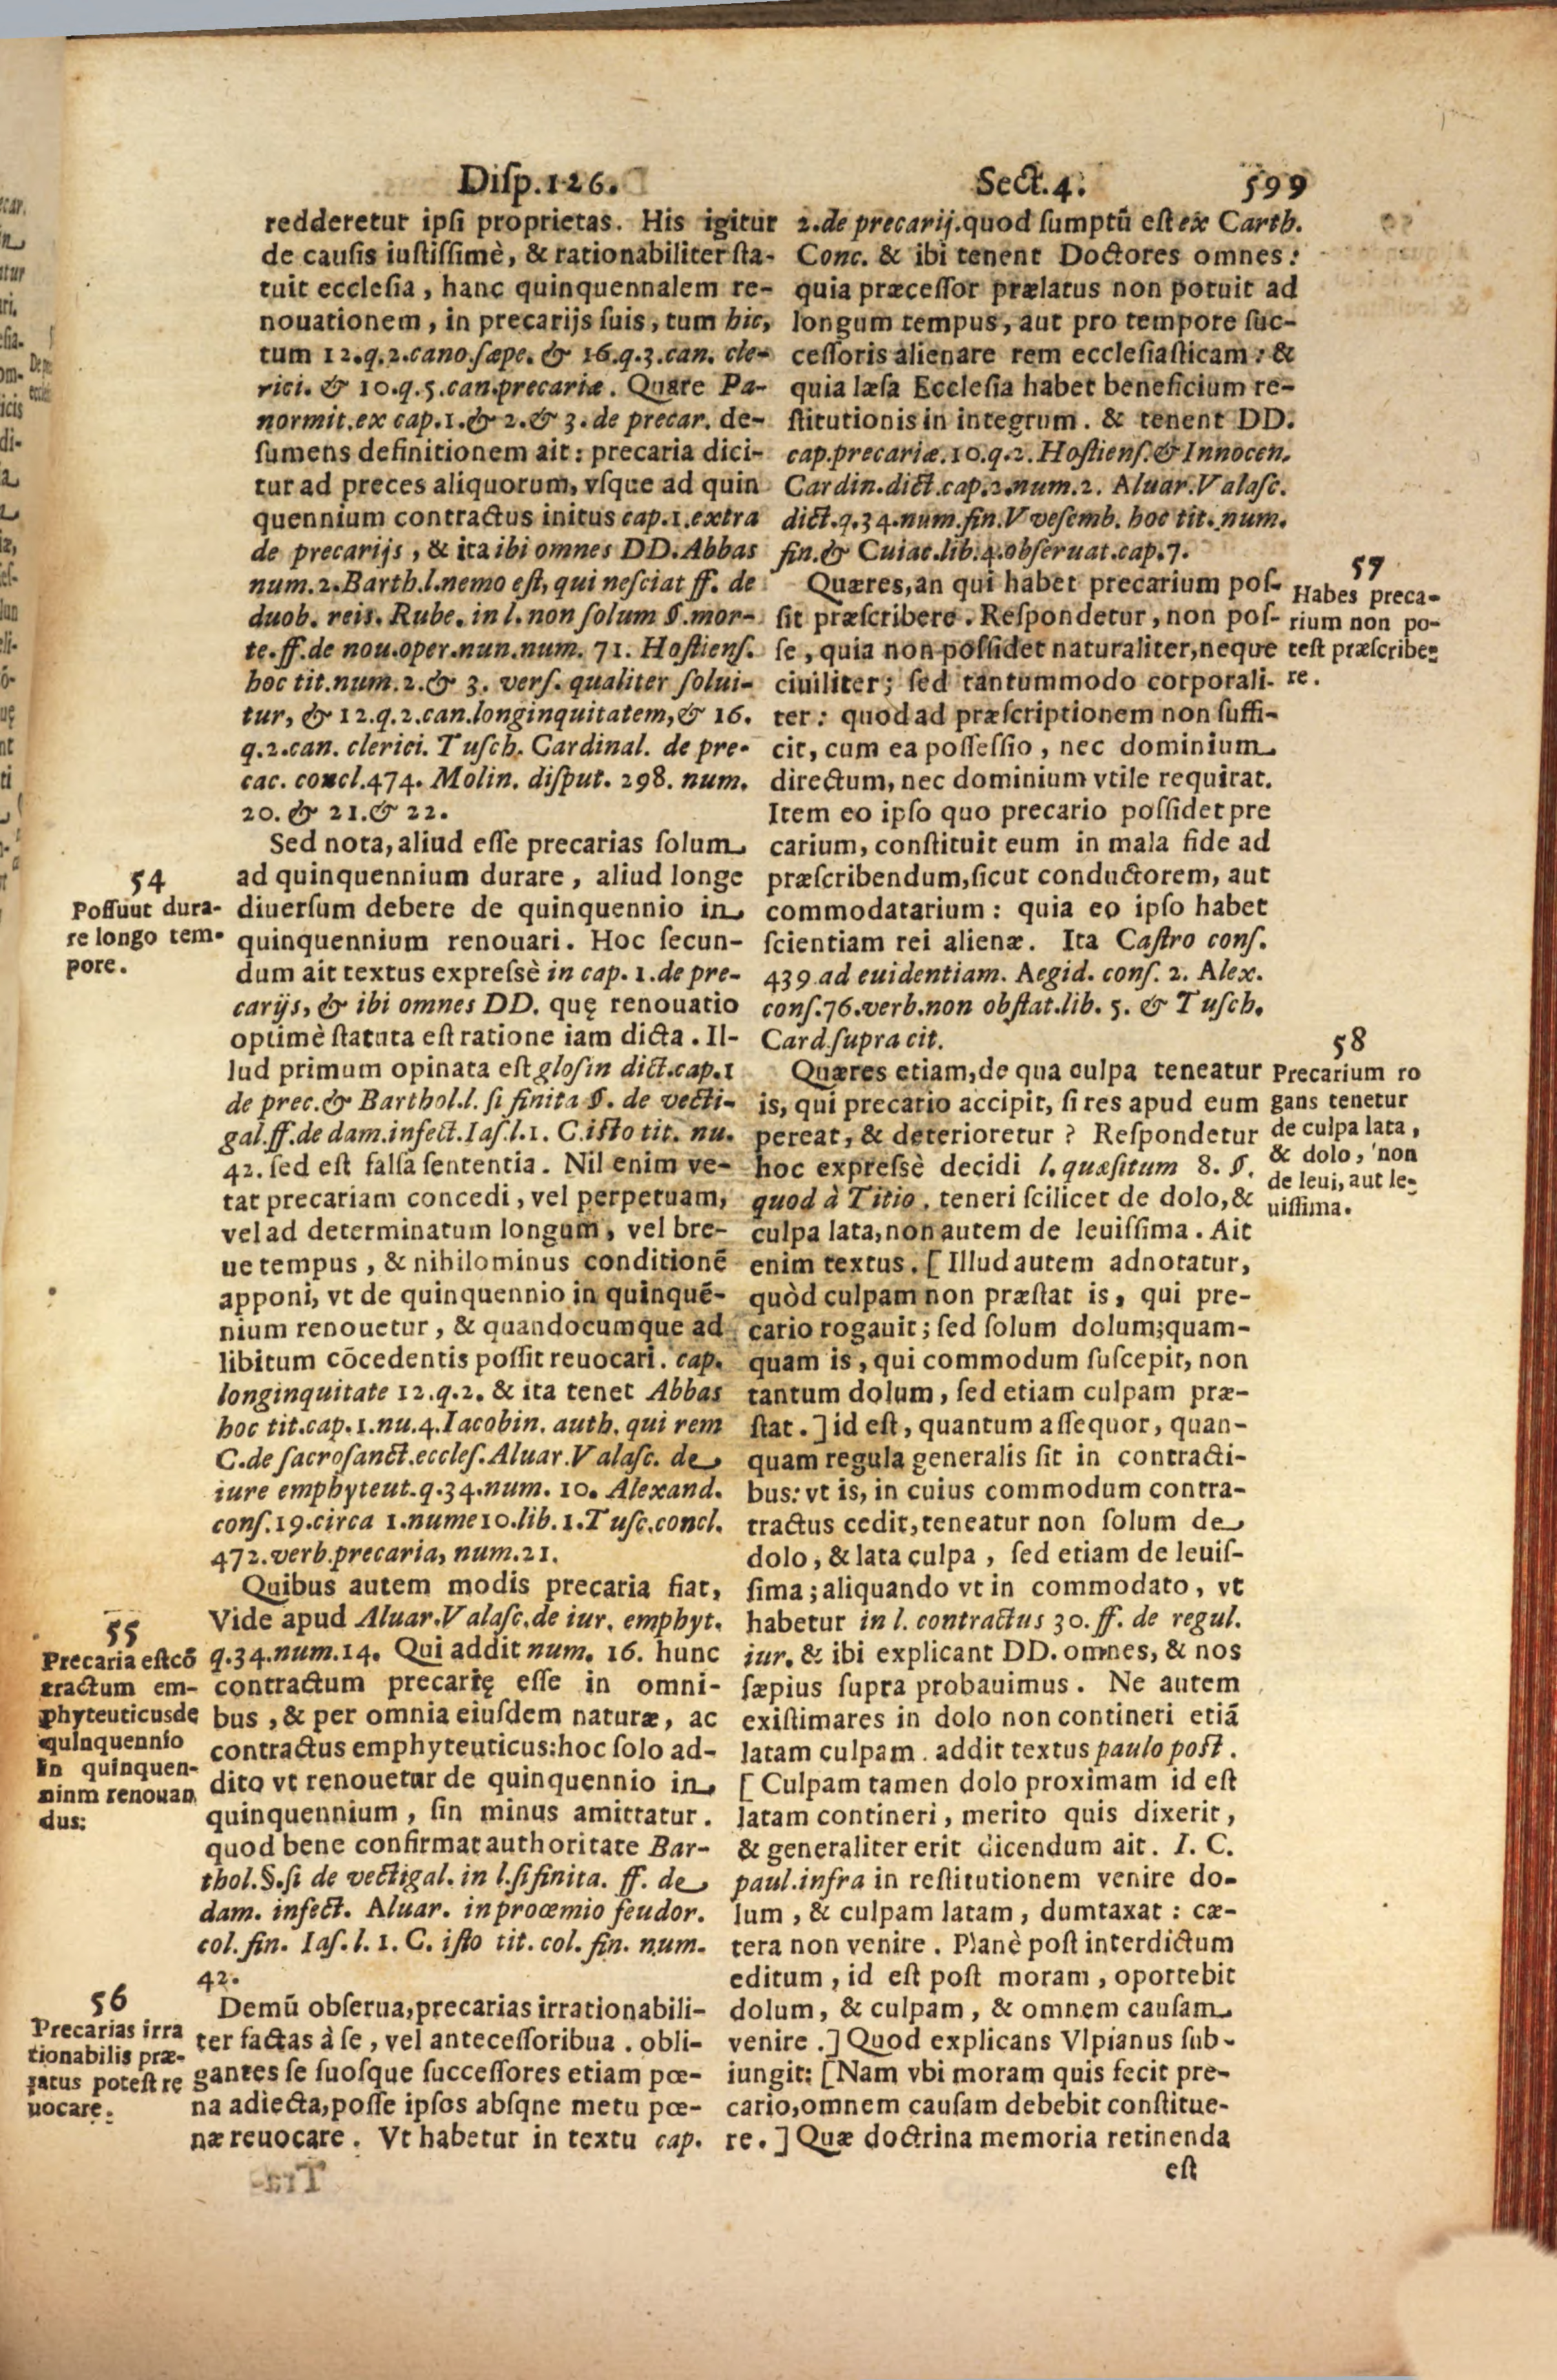 Disp.126. Sect.4. 599
redderetur ipsi proprietas. His igitur
de causis iustissimè, & rationabiliter sta-
tuit ecclesia, hanc quinquennalem re-
nouationem, in precarijs suis, tum hic,
tum 12.q.2.cano.sæpe. & 16.q.3.can. cle-
rici. & 10.q.5.can.precariæ. Quare Pa-
normit.ex cap.1.& 2.& 3. de precar. de-
sumens definitionem ait: precaria dici-
tur ad preces aliquorum, vsque ad quin
quennium contractus initus cap.1.extra
de precarijs, & ita ibi omnes DD.Abbas
num.2.Barth.l.nemo est, qui nesciat ff. de
duob. reis. Rube. in l. non solum §.mor-
te.ff.de nou.oper.nun.num. 71. Hostiens.
hoc tit.num.2.& 3. vers. qualiter solui-
tur, & 12.q.2.can.longinquitatem,& 16.
q.2.can. clerici. Tusch. Cardinal. de pre-
cac. concl.474. Molin. disput. 298. num.
20. & 21.& 22.
Sed nota, aliud esse precarias solum
ad quinquennium durare, aliud longe
diuersum debere de quinquennio in
quinquennium renouari. Hoc secun-
dum ait textus expressè in cap. 1.de pre-
carijs, & ibi omnes DD. quę renouatio
optimè statuta est ratione iam dicta. Il-
lud primum opinata est glos in dict.cap.1
de prec.& Barthol.l. si finita §. de vecti-
gal.ff.de dam.infect.Ias.l.1. C.isto tit. nu.
42. sed est falsa sententia. Nil enim ve-
tat precariam concedi, vel perpetuam,
vel ad determinatum longum, vel bre-
ue tempus, & nihilominus conditionē
apponi, vt de quinquennio in quinquē-
nium renouetur, & quandocumque ad
libitum cōcedentis possit reuocari. cap.
longinquitate 12.q.2. & ita tenet Abbas
hoc tit.cap.1.nu.4.Iacobin. auth. qui rem
C.de sacrosanct.eccles.Aluar.Valasc. de
iure emphyteut.q.34.num. 10. Alexand.
cons.19.circa 1.nume10.lib.1.Tusc.concl.
472.verb.precaria, num.21.
Quibus autem modis precaria fiat,
Vide apud Aluar.Valasc.de iur. emphyt.
q.34.num.14. Qui addit num. 16. hunc
contractum precarię esse in omni-
bus, & per omnia eiusdem naturæ, ac
contractus emphyteuticus:hoc solo ad-
dito vt renouetur de quinquennio in
quinquennium, sin minus amittatur.
quod bene confirmat authoritate Bar-
thol.§.si de vectigal. in l.si finita. ff. de
dam. infect. Aluar. in proœmio feudor.
col.fin. Ias.l. 1. C. isto tit. col. fin. num.
42.
Demū obserua, precarias irrationabili-
ter factas à se, vel antecessoribua. obli-
gantes se suosque successores etiam pœ-
na adiecta, posse ipsos absqne metu pœ-
næ reuocare. Vt habetur in textu cap.
54
Possuut dura-
re longo tem-
pore.
55
Precaria est cō
tractum em-
phyteuticusde
quinquennio
In quinquen-
ninm renouan
dus:
56
Precarias irra
tionabilis præ-
latus potest re
uocare.
2.de precarij.quod sumptū est ex Carth.
Conc. & ibi tenent Doctores omnes:
quia præcessor prælatus non potuit ad
longum tempus, aut pro tempore suc-
cessoris alienare rem ecclesiasticam: &
quia læsa Ecclesia habet beneficium re-
stitutionis in integrum. & tenent DD.
cap.precariæ.10.q.2. Hostiens.& Innocen.
Cardin.dict.cap.2.num.2. Aluar.Valasc.
dict.q.34.num.fin.Vvesemb. hoc tit. num.
fin.& Cuiac.lib.4.obseruat.cap.7.
Quæres, an qui habet precarium pos-
sit præscribere. Respondetur, non pos-
se, quia non possidet naturaliter, neque
ciuiliter; sed tantummodo corporali-
ter: quod ad præscriptionem non suffi-
cit, cum ea possessio, nec dominium
directum, nec dominium vtile requirat.
Item eo ipso quo precario possidet pre
carium, constituit eum in mala fide ad
præscribendum, sicut conductorem, aut
commodatarium: quia eo ipso habet
scientiam rei alienæ. Ita Castro cons.
439 ad euidentiam. Aegid. cons. 2. Alex.
cons.76.verb.non obstat.lib. 5. & Tusch.
Card.supra cit.
Quæres etiam, de qua culpa teneatur
is, qui precario accipit, si res apud eum
pereat, & deterioretur? Respondetur
hoc expressè decidi l. quæsitum 8. §.
quod à Titio. teneri scilicet de dolo, &
culpa lata, non autem de leuissima. Ait
enim textus. [Illud autem adnotatur,
quòd culpam non præstat is, qui pre-
cario rogauit; sed solum dolum; quam-
quam is, qui commodum suscepit, non
tantum dolum, sed etiam culpam præ-
stat.] id est, quantum assequor, quan-
quam regula generalis sit in contracti-
bus: vt is, in cuius commodum contra-
tractus cedit, teneatur non solum de
dolo, & lata culpa, sed etiam de leuis-
sima; aliquando vt in commodato, vt
habetur in l. contractus 30. ff. de regul.
iur. & ibi explicant DD. omnes, & nos
sæpius supra probauimus. Ne autem
existimares in dolo non contineri etiā
latam culpam. addit textus paulo post.
[Culpam tamen dolo proximam id est
latam contineri, merito quis dixerit,
& generaliter erit dicendum ait. I. C.
paul.infra in restitutionem venire do-
lum, & culpam latam, dumtaxat: cæ-
tera non venire. Planè post interdictum
editum, id est post moram, oportebit
dolum, & culpam, & omnem causam
venire.] Quod explicans Vlpianus sub-
iungit: [Nam vbi moram quis fecit pre-
cario, omnem causam debebit constitue-
re.] Quæ doctrina memoria retinenda
est
57
Habes preca-
rium non po-
test præscribe-
re.
58
Precarium ro
gans tenetur
de culpa lata,
& dolo, non
de leui, aut le-
uissima.